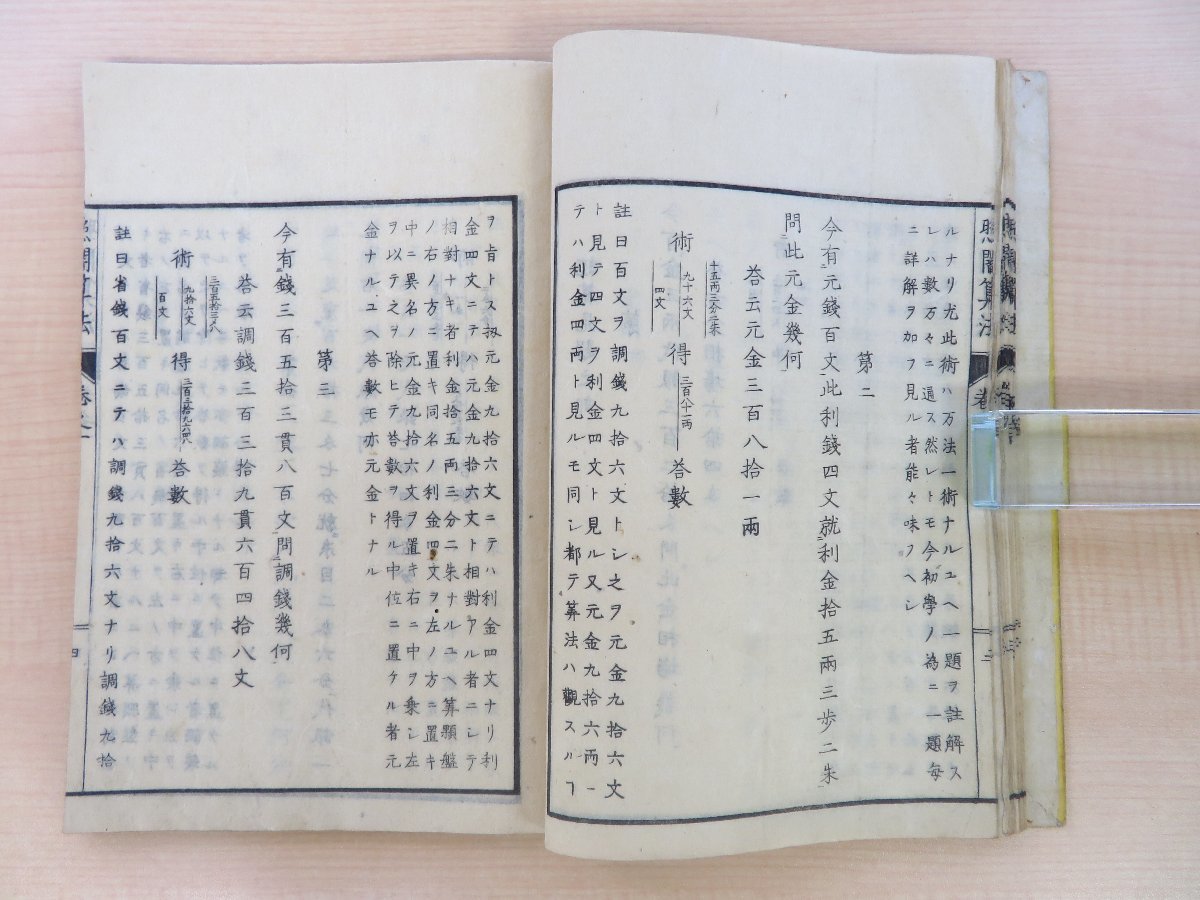 照闇算法
ルナリ尤此術ハ万法一術ナルユヘ一題ヲ註解ス
レハ数万々ニ通ス然レトモ今初學ノ為ニ一題每
ニ詳解ヲ加フ見ル者能々味フヘシ
第二
今有元錢百文此利錢四文就利金拾五兩三歩二朱
問此元金幾何
荅云元金三百八拾一兩
術
十五両三分二朱
九十六文
四文
得
三百八十一両
荅數
註曰百文ヲ調錢九拾六文トシ之ヲ元金九拾六文
ト見テ四文ヲ利金四文ト見ル又元金九拾六両一
テハ利金四両ト見ルモ同シ都テ算法ハ觀スルヿ
ヲ肯トス扨元金九拾六文ニテハ利金四文ナリ利
金四文ニテハ元金九拾六文ト相對ヤル者ニシテ
相對ナキ者利金拾五両三分二朱ナルユヘ算顆盤
ノ右ノ方ニ置キ同名ノ利金四文ヲ左ノ方ニ置キ
中ニ異名ノ元金九拾六文ヲ置キ右ニ中ヲ乗シ左
ヲ以テ之ヲ除ヒテ荅數ヲ得ル中位ニ置ケル者元
金ナルユヘ荅數モ亦元金トナル
第三
今有錢三百五拾三貫八百文問調錢幾何
荅云調錢三百三拾九貫六百四拾八文
術
三百五拾三メ八
九拾六文
百文
得
三百三拾九メ六四八
荅數
註曰省錢百文ニテハ調錢九拾六文ナリ調錢九拾
四